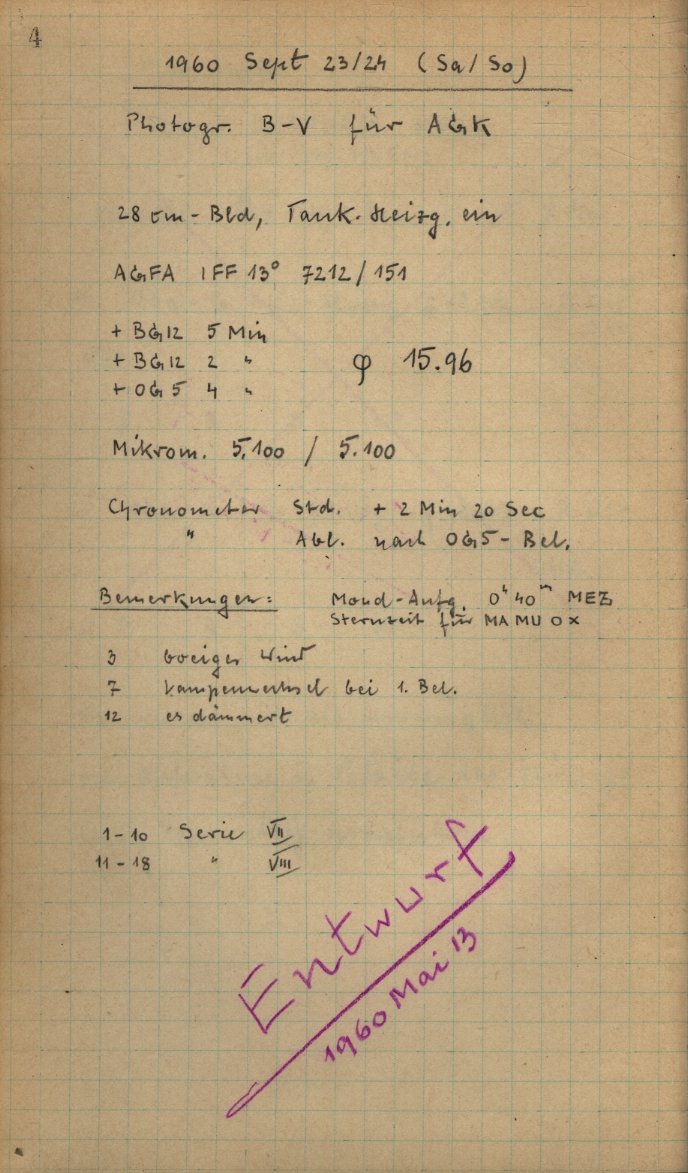 4
1960 Sept 23/24 (Sa/So)
Photogr. B-V für AGK
28 cm-Bld, Tank-Heizg. ein
AGFA IFF 13° 7212/151
+ BG12 5 Min
+ BG12 2 "
φ 15.96
+ OG5 4 "
Mikrom. 5.100 / 5.100
Chronometer Std. + 2 Min 20 Sec
" Abl. nach OG5-Bel.
Bemerkungen: Mond-Aufg. 0ʰ 40ᵐ MEZ
Sternzeit für MAMUOX
3 boeiger Wind
7 Lampenwechsel bei 1. Bel.
12 es dämmert
1-10 Serie VII
11-18 " VIII
Entwurf
1960 Mai 13